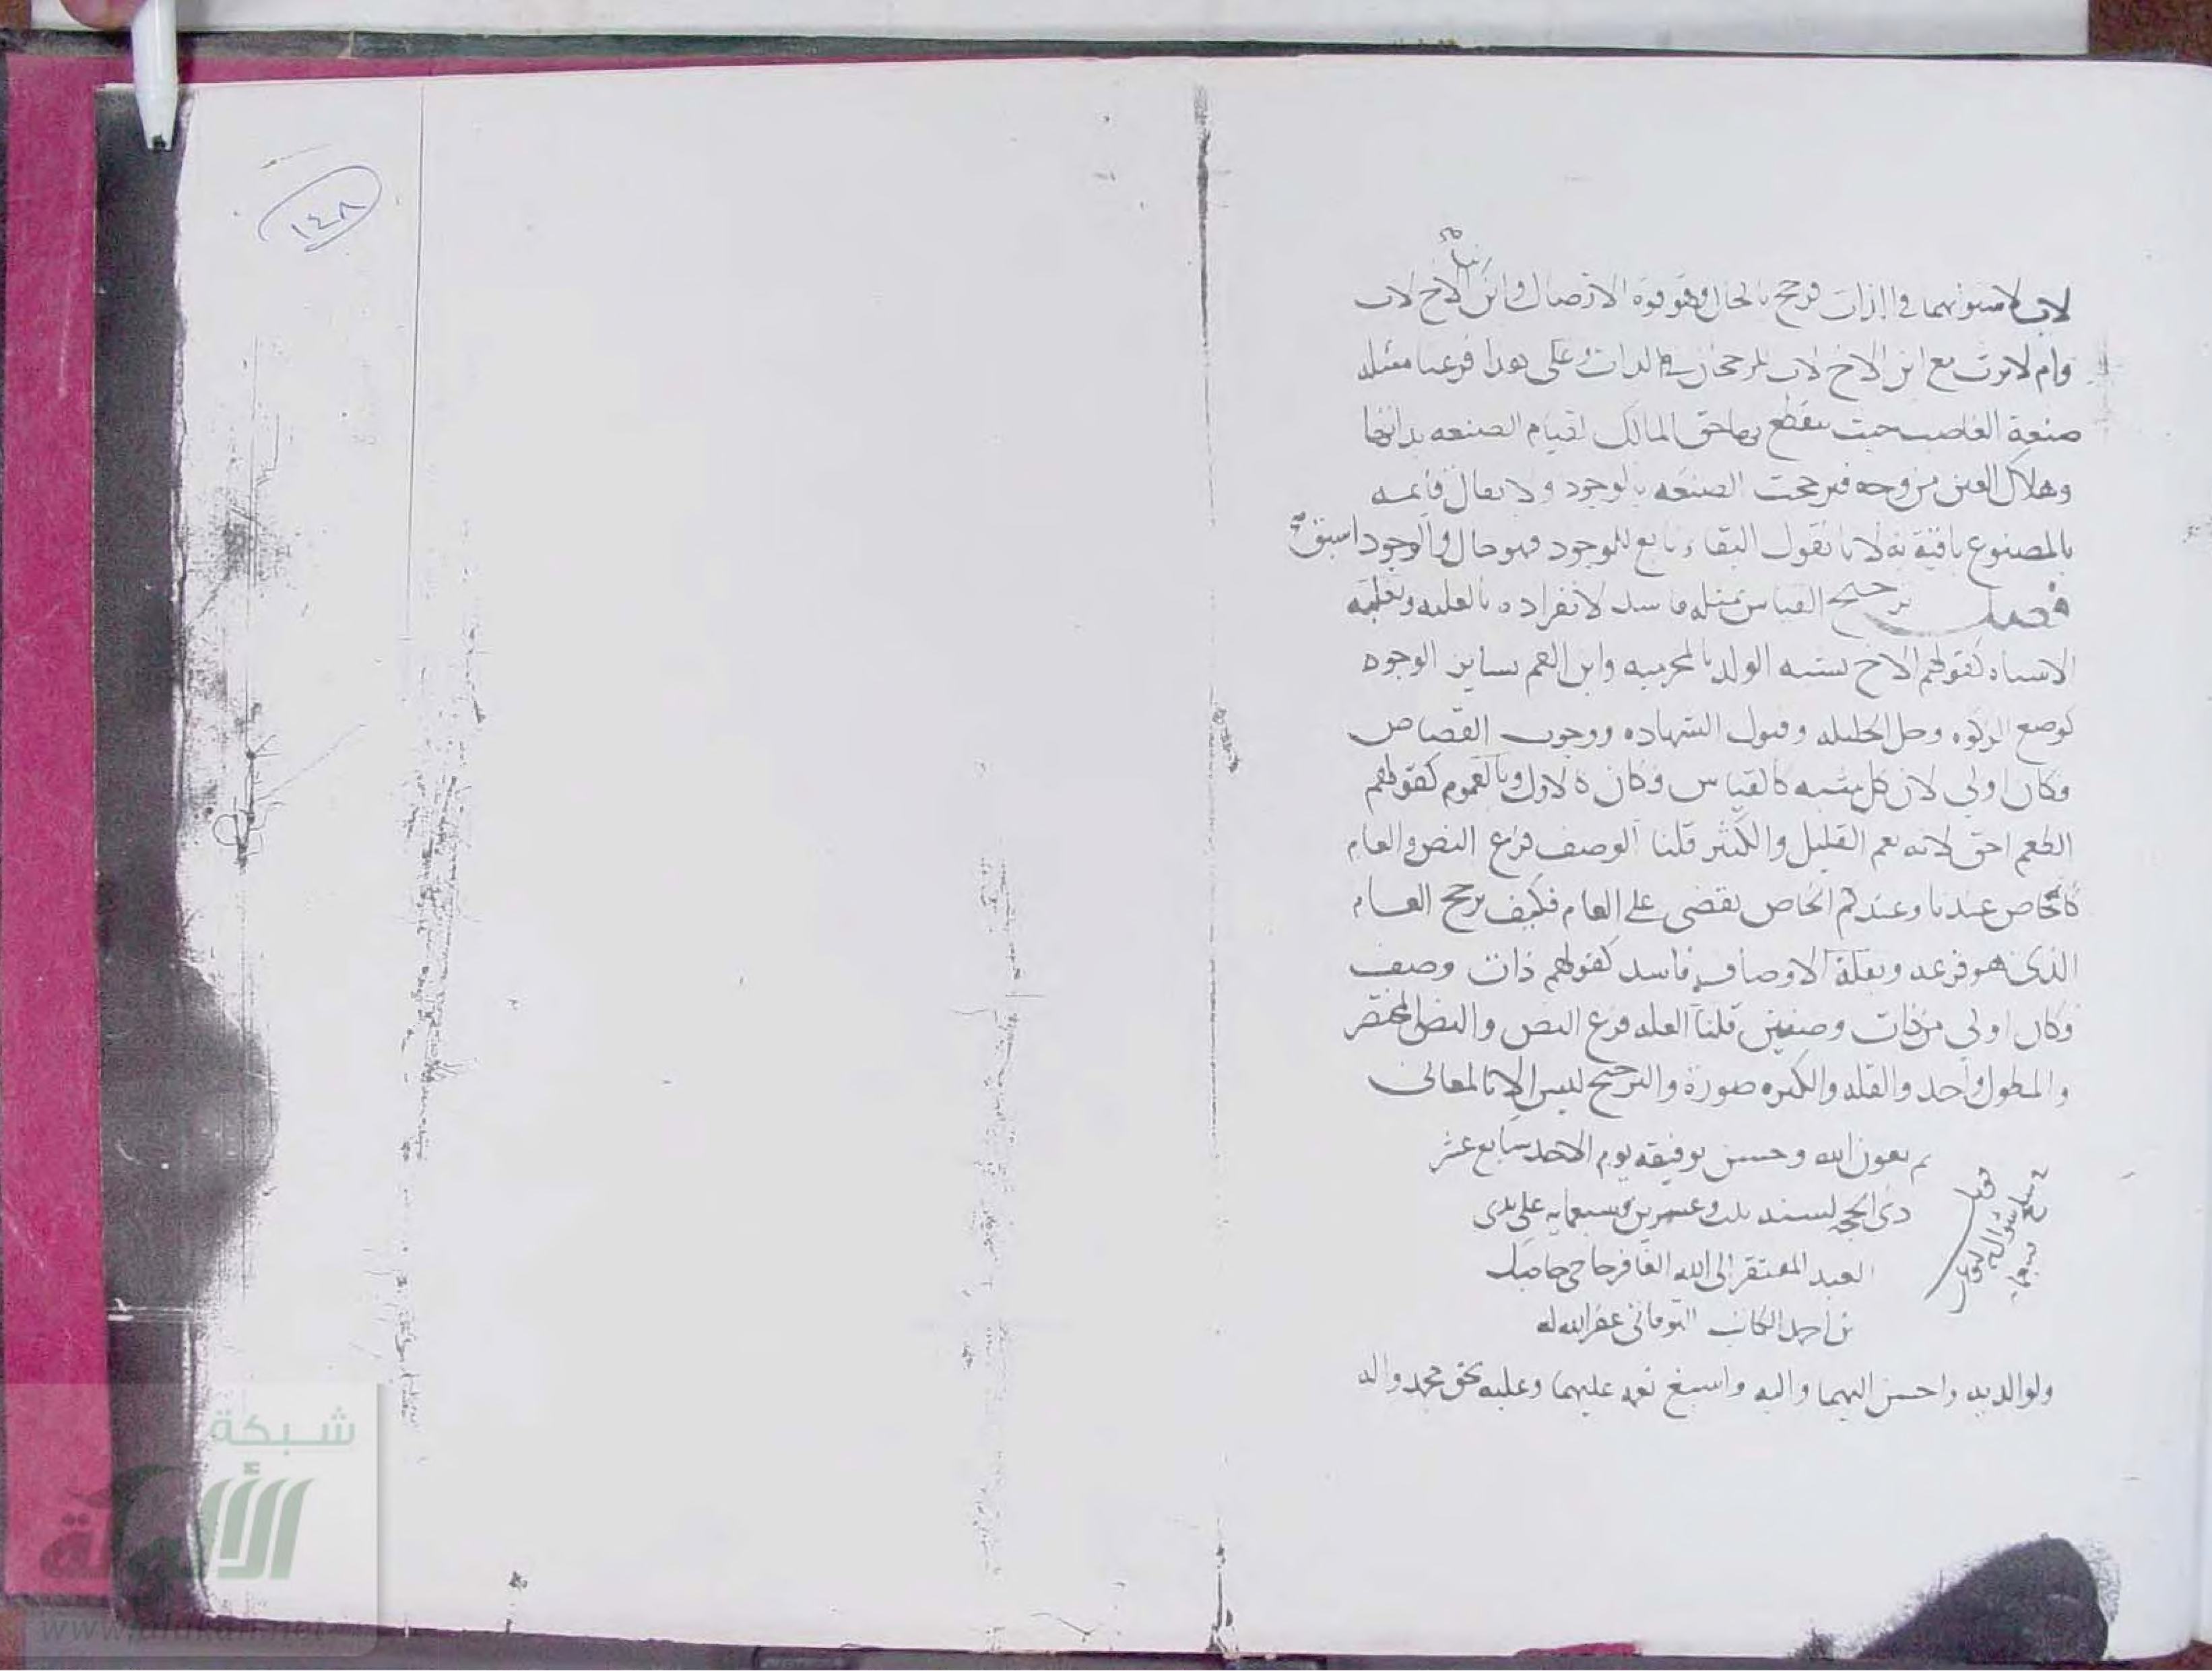 لاب لاستوائهما في الذات فرجح بالحال وهو قوة الاتصال وابن الاخ لاب
وام لا يرث مع ابن الاخ لاب للرجحان في الذات وعلى هذا فرعنا مسئلة
صنعة الغاصب حيث ينقطع بها حق المالك لقيام الصنعة بذاتها
وهلاك العين من وجه فترجحت الصنعة بالوجود ولا يقال قائمة
بالمصنوع باقية به لانا نقول البقاء تابع للوجود فهو حال والوجود اسبق
فصل ترجيح القياس بمثله فاسد لانفراده بالعلية وبغلبة
الاشباه كقولهم الاخ يشبه الولد بالمحرمية وابن العم بساير الوجوه
كوضع الزكوة وحل الحليلة وقبول الشهادة ووجوب القصاص
فكان اولي لان كل شبه كالقياس فكان كالاول وبالعموم كقولهم
الطعم احق لانه يعم القليل والكثير قلنا الوصف فرع النص والعام
كالخاص عندنا وعندكم الخاص يقضي على العام فكيف يرجح العام
الذي هو فرعه وبقلة الاوصاف فاسد كقولهم ذات وصف
فكان اولي من ذات وصفين قلنا العلة فرع النص والنص المختصر
والمطول واحد والقلة والكثرة صورة والترجيح ليس الا بالمعاني
تم بعون الله وحسن توفيقه يوم الاحد سابع عشر
ذي الحجة لسنة ثلث وعشرين وسبعماية على يدي
العبد المفتقر الى الله الغافر حاجي
بن احمد الكاتب عفر الله له
ولوالديه واحسن اليهما واليه واسبغ نعمه عليهما وعليه بحق محمد واله
١٤٨
شبكة
الألوكة
www.alukah.net